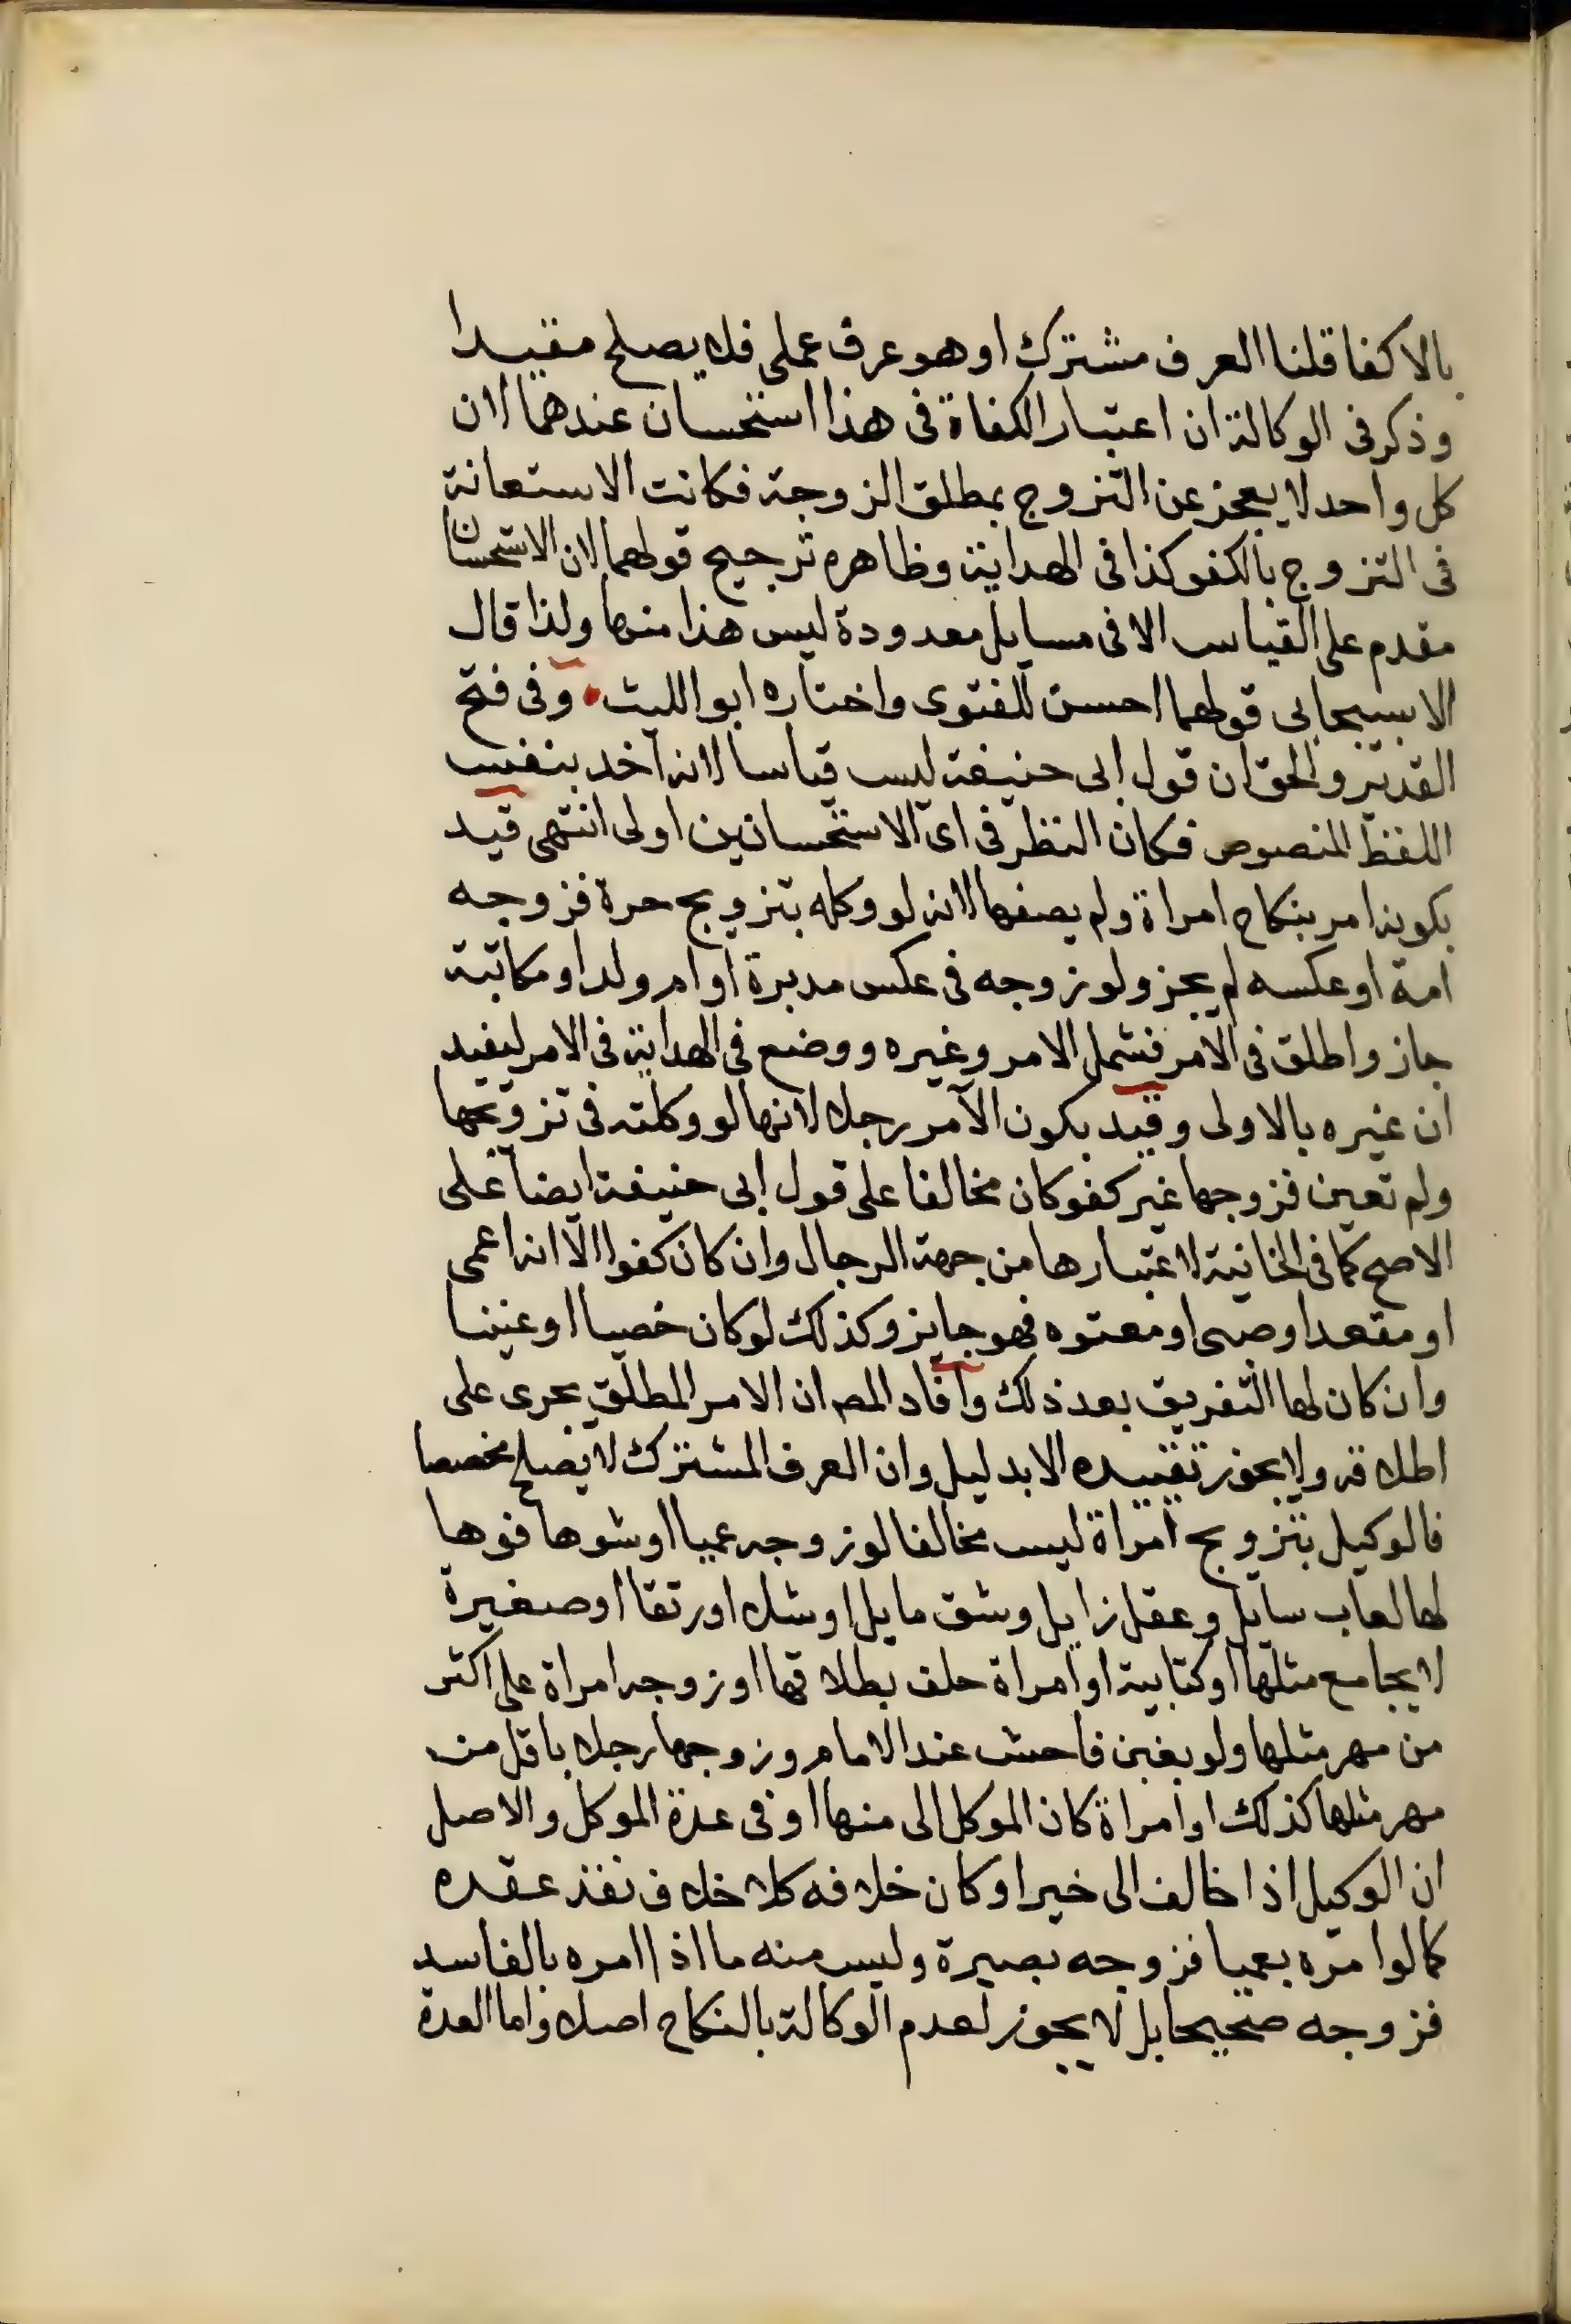 بالاكفا قلنا العرف مشترك او هو عرف عملى فلا يصلح مقيدا
وذكر فى الوكالة ان اعتبار الكفاة فى هذا استحسان عندهما لان
كل واحد لا يعجز عن التزوج بمطلق الزوجة فكانت الاستعانة
فى التزوج بالكفو كذا فى الهداية وظاهره ترجيح قولهما لان الاستحسان
مقدم على القياس الا فى مسايل معدودة ليس هذا منها ولذا قال
الاسبيجابى قولهما احسن للفتوى واختاره ابو الليث وفى فتح
القدير والحق ان قول ابى حنيفة ليس قياسا لانه اخذ بنفس
اللفظ المنصوص فكان النظر فى اى الاستحسانين اولى انتهى قيد
بكونه امر بنكاح امراة ولم يصفها لانه لو وكله بتزويج حرة فزوجه
امة او عكسه لم يجز ولو زوجه فى عكس مدبرة او ام ولد او مكاتبة
جاز واطلق فى الامر فشمل الامر وغيره ووضع فى الهداية فى الامر ليفيد
ان غيره بالاولى وقيد بكون الآمر رجلا لانها لو وكلته فى تزويجها
ولم تعين فزوجها غير كفو كان مخالفا على قول ابى حنيفة ايضا على
الاصح كما فى الخانية لاعتبارها من جهة الرجال وان كان كفوا الا انه اعمى
او مقعد او صبى او معتوه فهو جايز وكذلك لو كان خصيا او عنينا
وان كان لها التفريق بعد ذلك وافاد المصـ ان الامر المطلق يجرى على
اطلاقه ولا يجوز تقييده الا بدليل وان العرف المشترك لا يصلح مخصصا
فالوكيل بتزويج امراة ليس مخالفا لو زوجه عميا او شوها فوها
لها لعاب سايل وعقل زايل وشق مايل او شلا او رتقا او صغيرة
لا يجامع مثلها او كتابية او امراة حلف بطلاقها او زوجه امراة على اكثر
من مهر مثلها ولو بغبن فاحش عند الامام وزوجها رجلا باقل من
مهر مثلها كذلك او امراة كان الموكل الى منها او فى عدة الموكل والاصل
ان الوكيل اذا خالف الى خير او كان خلافه كلا خلاف نفذ عقده
كما لو امره بعميا فزوجه بصيرة وليس منه ما اذا امره بالفاسد
فزوجه صحيحا بل لا يجوز لعدم الوكالة بالنكاح اصلا واما العدة